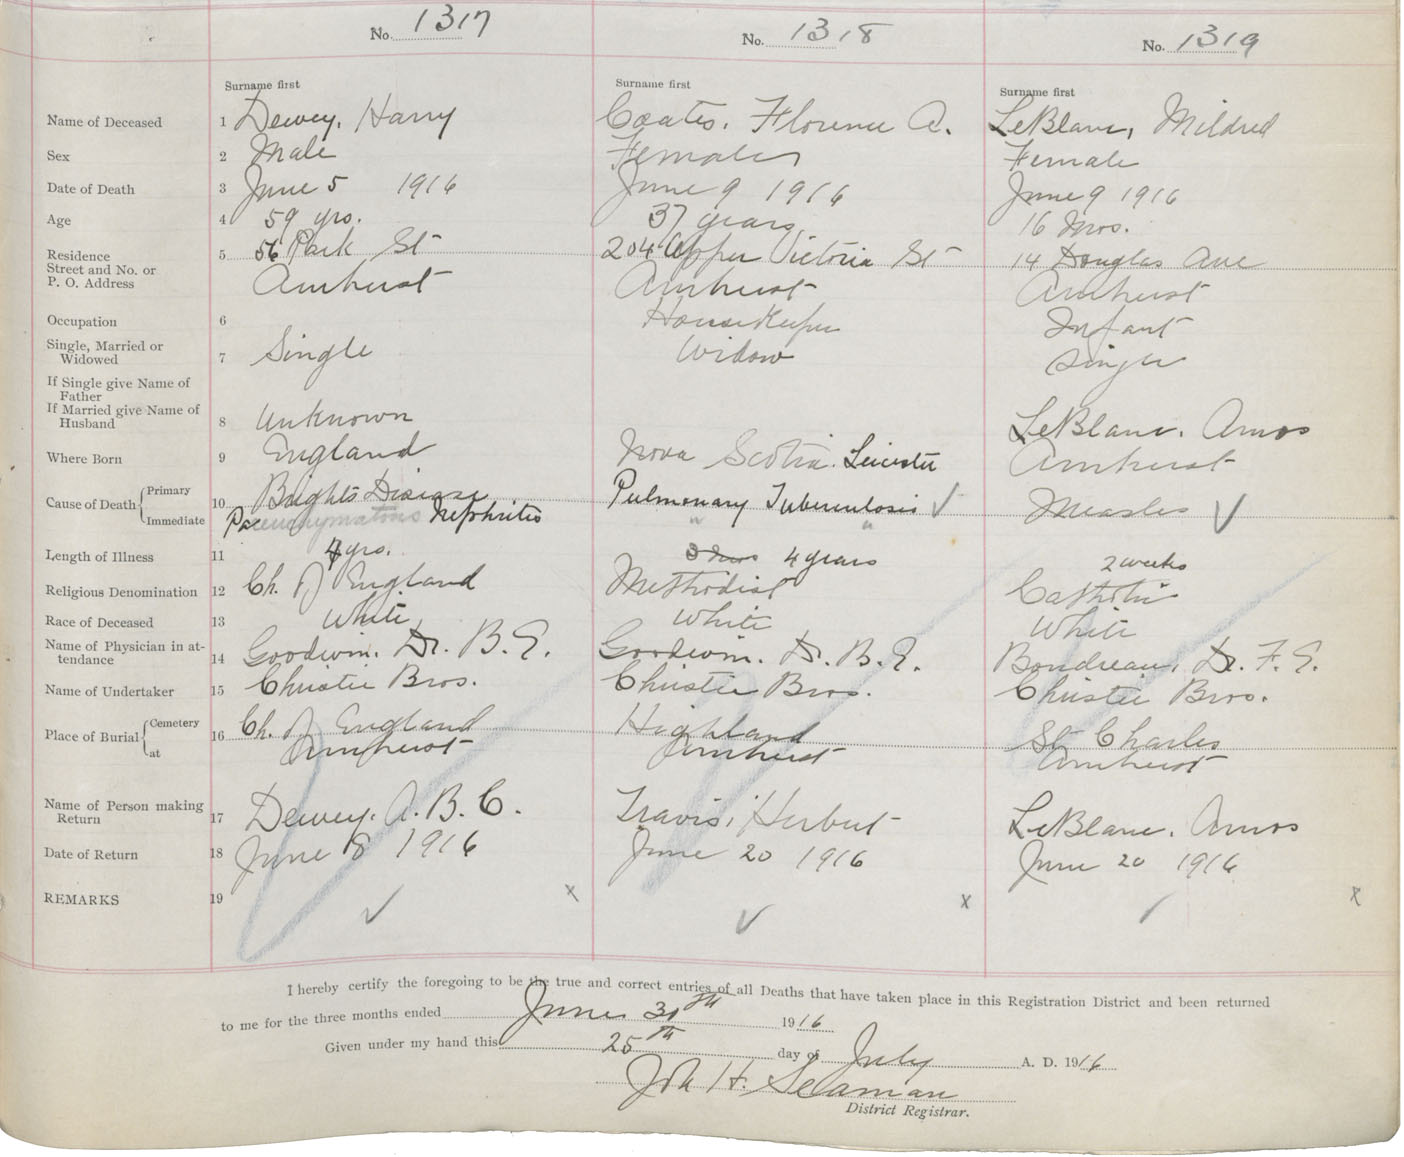 No. 1317 No. 1318 No. 1319
Surname first Surname first Surname first
Name of Deceased 1 Dewey, Harry Coates, Florence A. LeBlanc, Mildred
Sex 2 Male Female Female
Date of Death 3 June 5 1916 June 9 1916 June 9 1916
Age 4 59 yrs. 37 years 16 Mos.
Residence 5 56 Park St 204 Upper Victoria St 14 Douglas Ave
Street and No. or
P. O. Address Amherst Amherst Amherst
Occupation 6 HouseKeeper Infant
Single, Married or
Widowed 7 Single Widow Single
If Single give Name of
Father
If Married give Name of
Husband 8 Unknown LeBlanc, Amos
Where Born 9 England Nova Scotia. Leicester Amherst
Cause of Death Primary 10 Brights Disease Pulmonary Tuberculosis ✓ Measles ✓
Immediate Parenchymatous Nephritis " "
Length of Illness 11 4 yrs. 3 mos 4 years 2 weeks
Religious Denomination 12 Ch. of England Methodist Catholic
Race of Deceased 13 White White White
Name of Physician in at-
tendance 14 Goodwin. Dr. B. E. Goodwin. Dr. B. E. Boudreau, Dr. F. E.
Name of Undertaker 15 Christie Bros. Christie Bros. Christie Bros.
Place of Burial Cemetery 16 Ch. of England Highland St Charles
at Amherst Amherst Amherst
Name of Person making
Return 17 Dewey, A. B. C. Travis, Herbert LeBlanc, Amos
Date of Return 18 June 8 1916 June 20 1916 June 20 1916
REMARKS 19 ✓ x ✓ x x
I hereby certify the foregoing to be the true and correct entries of all Deaths that have taken place in this Registration District and been returned
to me for the three months ended June 30th 1916
Given under my hand this 25th day of July A. D. 1916
H. Seaman
District Registrar.